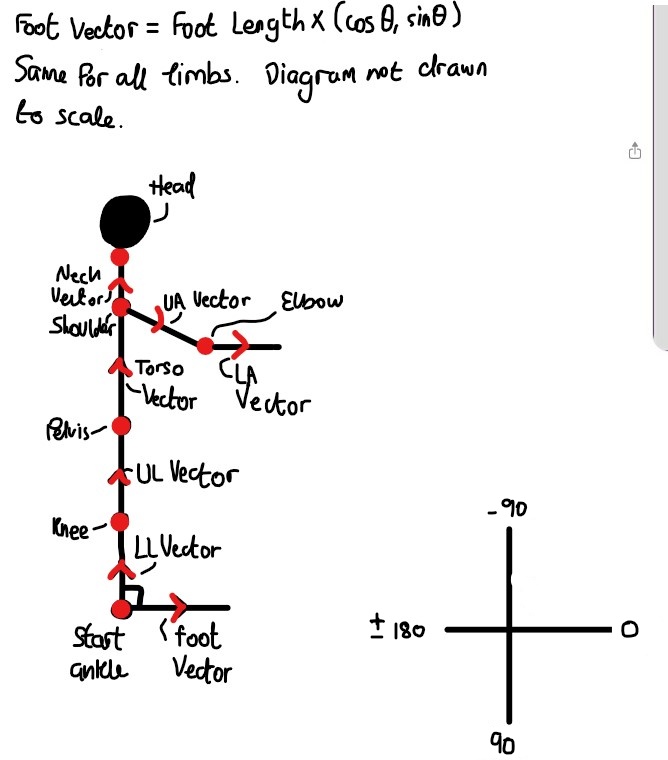 Foot Vector = Foot Length X (cos θ, sinθ)
Same for all limbs. Diagram not drawn
to scale.
Head
Neck
Vector
Shoulder
UA Vector
Elbow
Torso
Vector
LA
Vector
Pelvis
UL Vector
Knee
LL Vector
Start
ankle
foot
Vector
-90
± 180
0
90